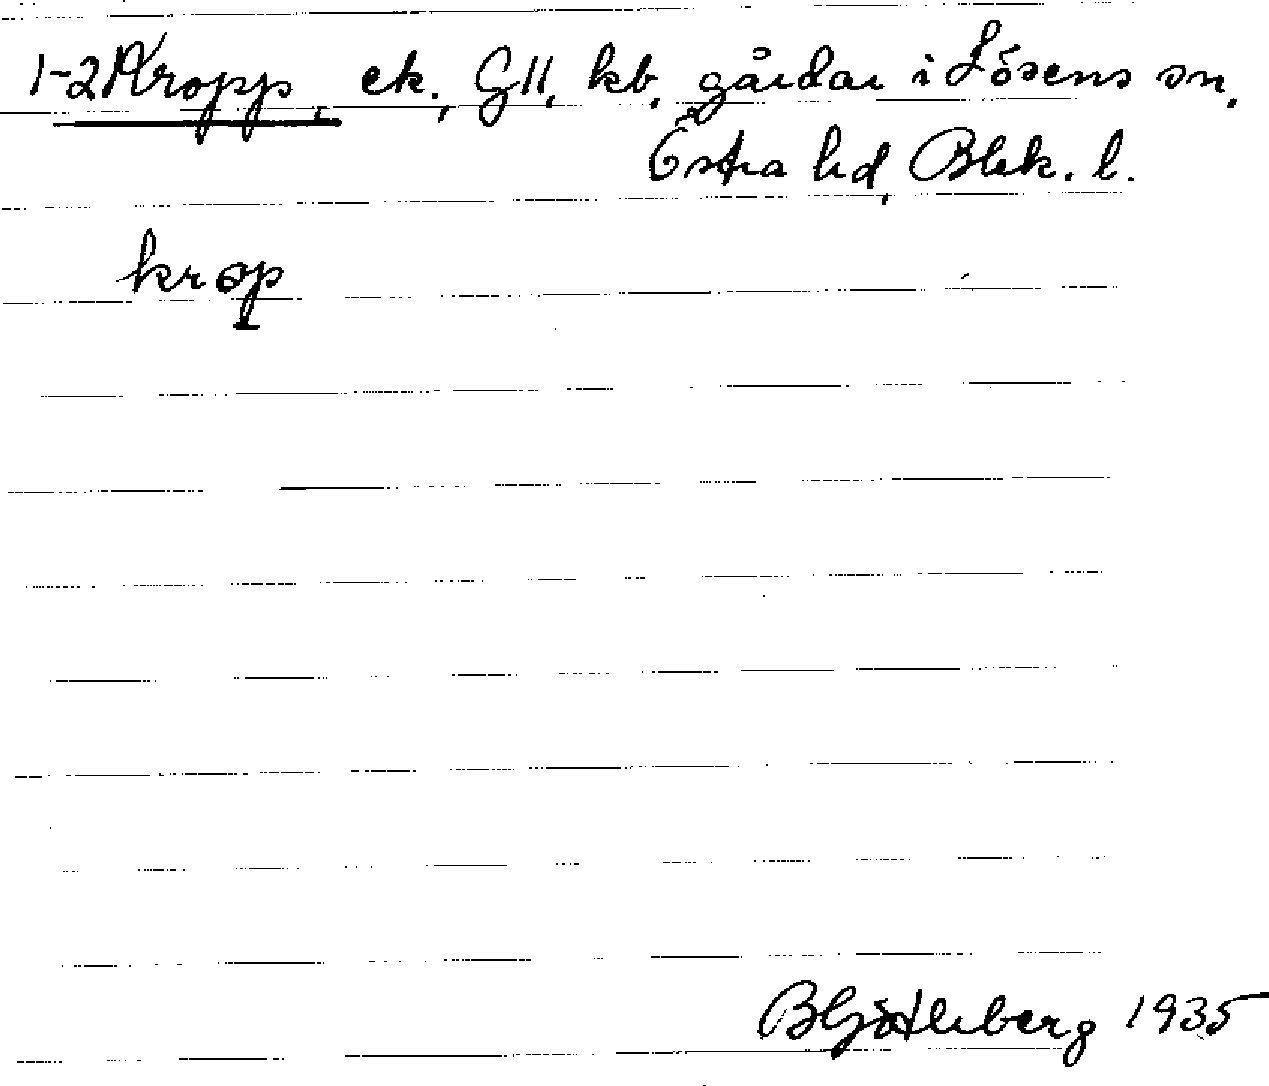 1-2 Kropp, ek., GII, kb, gårdar i Lösens sn,
Östra hd, Blek. l.
krop
BGötleberg 1935